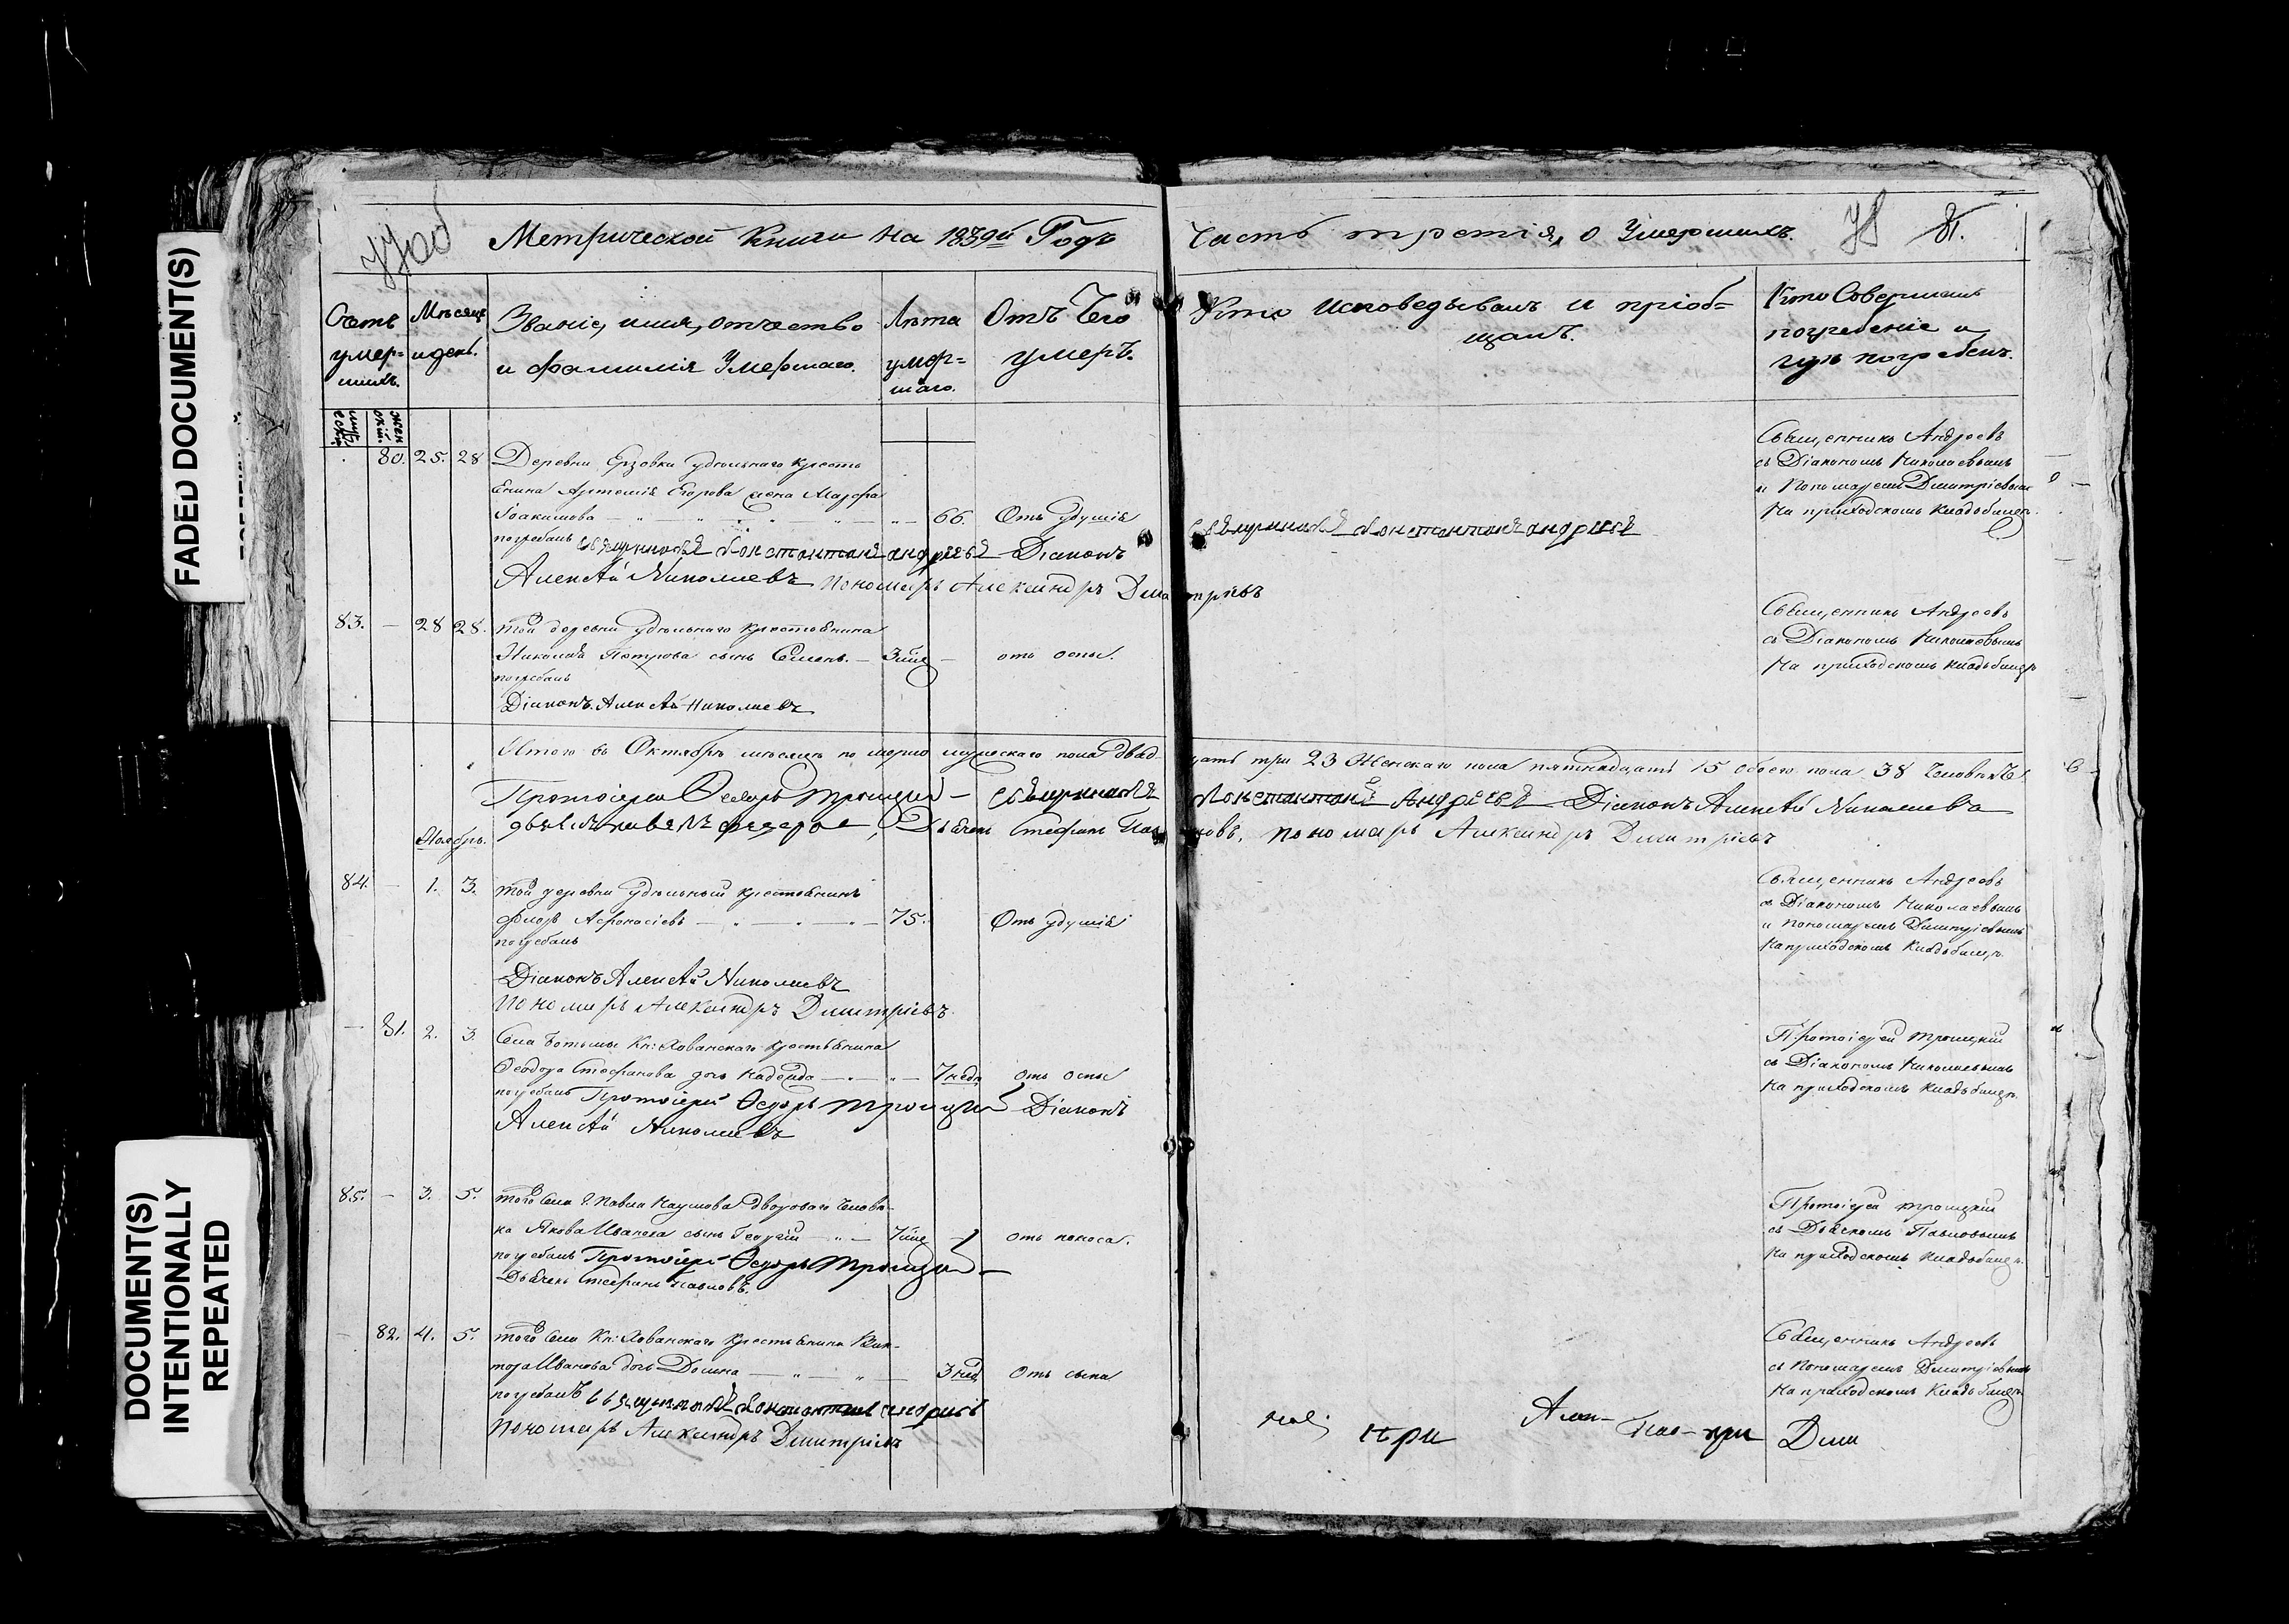 FADED DOCUMENT(S)
DOCUMENT(S)
INTENTIONALLY
REPEATED
Метрической Книги на 1839й Годъ
Часть третія, о Умершихъ.
81.
Счетъ умер=шихъ.
Мѣсяцъ и день.
Званіе, имя, отчество
и фамилія Умершаго.
Лѣта умер=шаго.
Отъ Чего
умеръ.
Кто Исповедывалъ и пріоб=
щалъ.
Кто Совершалъ
погребеніе и
гдѣ погребенъ.
80. 25. 28 Деревни Ерзовки удѣльнаго кресть
янина Артемія Егорова жена Марфа
Іоакимова 66. Отъ удушія
погребалъ Священникъ Константинъ Андреевъ Діаконъ
Алексѣй Николаевъ Пономарь Александръ Дмитріевъ
Священникъ Константинъ Андреевъ
Священникъ Андреевъ
съ Діакономъ Николаевымъ
и Пономаремъ Дмитріевымъ
На приходскомъ кладбищѣ
83. 28 28. той деревни удѣльнаго крестьянина
Николая Петрова сынъ Семенъ. отъ оспы.
погребалъ
Діаконъ Алексѣй Николаевъ
Священникъ Андреевъ
съ Діакономъ Николаевымъ
На приходскомъ кладбищѣ
Итого въ Октябрѣ мѣсяцѣ по мерло мужескаго пола двад
цать три 23 Женскаго пола пятнадцать 15 обоего пола 38 Человѣкъ
Протоіерей Ѳедоръ Троицкій Священникъ
Константинъ Андреевъ Діаконъ Алексѣй Николаевъ
Дьячекъ Стефанъ Павловъ, пономарь Александръ Дмитріевъ
Ноябрь.
84. 1. 3. той деревни удѣльный крестьянинъ
Флоръ Афонасіевъ 75. Отъ удушія
погребалъ
Діаконъ Алексѣй Николаевъ
Пономарь Александръ Дмитріевъ
Священникъ Андреевъ
съ Діакономъ Николаевымъ
и пономаремъ Дмитріевымъ
На приходскомъ Кладбищѣ.
81. 2. 3. Села Ботьмы Кн: Хованскаго крестьянина
Ѳеодора Стефанова дочь Надежда 7 нед. отъ оспы
погребалъ Протоіерей Ѳедоръ Троицкій Діаконъ
Алексѣй Николаевъ
Протоіерей Троицкій
съ Діакономъ Николаевымъ
На приходскомъ Кладбищѣ.
85. 3. 5. того Села Г. Павла Наумова двороваго Человѣ
ка Якова Иванова сынъ Георгій отъ поноса.
погребалъ Протоіерей Ѳедоръ Троицкій
Дьячекъ Стефанъ Павловъ.
Протоіерей Троицкій
съ Дьячкомъ Павловымъ
На приходскомъ Кладбищѣ.
82. 4. 5. того Села Кн: Хованскаго Крестьянина Вик
тора Иванова дочь Домна 3 нед
погребалъ Священникъ Константинъ Андреевъ
Пономарь Александръ Дмитріевъ
Священникъ Андреевъ
съ Пономаремъ Дмитріевымъ
На приходскомъ Кладбищѣ